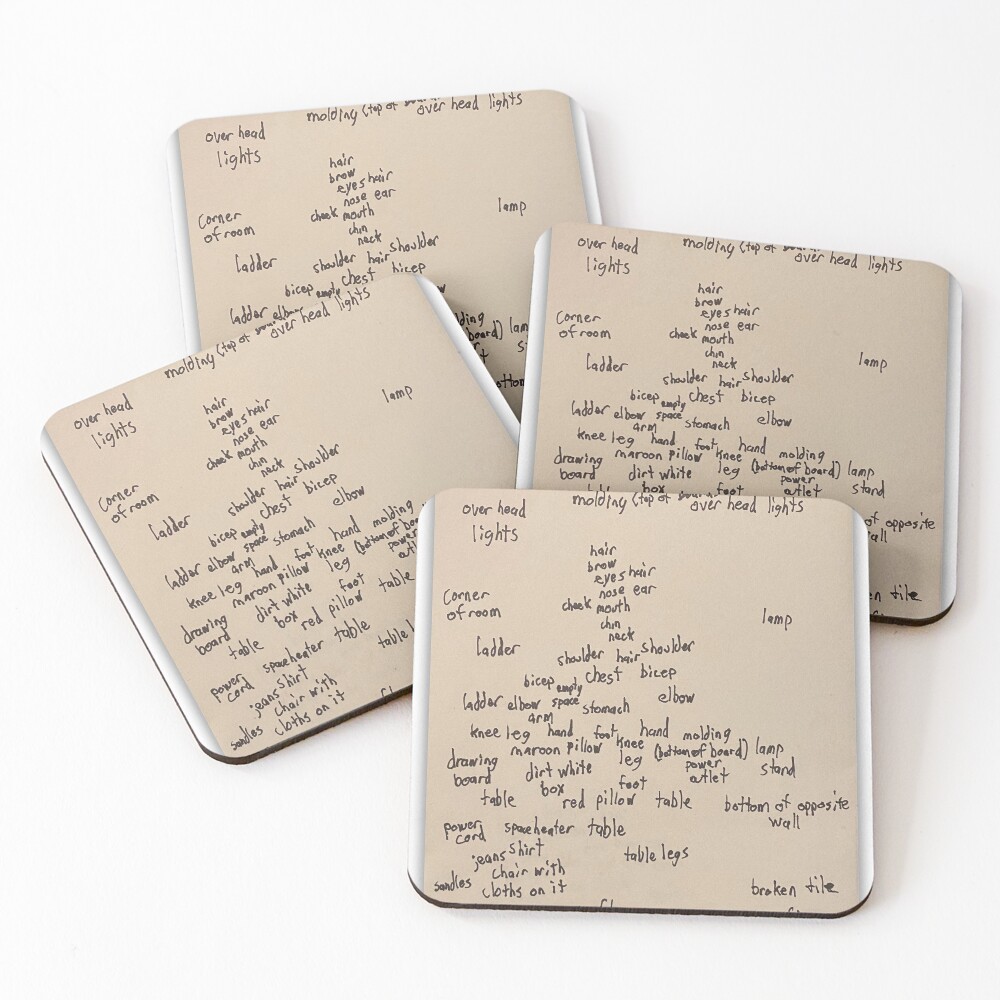 molding (top of
over head lights
over head
lights
hair
brow
eyes hair
nose ear
Corner
of room
cheek mouth
lamp
chin
neck
ladder
shoulder hair shoulder
bicep empty chest bicep
ladder elbow
molding
board)
bottom
molding (top of
over head lights
over head
lights
hair
brow
eyes hair
nose ear
Corner
of room
cheek mouth
chin
neck
ladder
lamp
shoulder hair shoulder
bicep empty chest bicep
ladder elbow space stomach elbow
arm
knee leg hand foot hand molding
drawing maroon pillow knee (bottom of board) lamp
board dirt white leg power stand
box foot outlet
of opposite
tile
molding (top of
over head lights
over head
lights
hair
brow
eyes hair
nose ear
lamp
cheek mouth
chin
neck
Corner
of room
ladder
shoulder hair shoulder
bicep empty chest bicep
ladder elbow space stomach elbow
arm
knee leg hand foot hand molding
drawing maroon pillow knee (bottom of
board dirt white leg power
box foot
table red pillow table
power cord space heater table
jeans shirt table
chair with
sandles cloths on it
molding (top of
over head lights
over head
lights
hair
brow
eyes hair
nose ear
Corner
of room
cheek mouth
lamp
chin
neck
ladder
shoulder hair shoulder
bicep empty chest bicep
ladder elbow space stomach elbow
arm
knee leg hand foot hand molding
maroon pillow knee (bottom of board) lamp
drawing
board dirt white leg power outlet stand
box foot
table red pillow table bottom of opposite
wall
power cord space heater table
jeans shirt table legs
chair with
sandles cloths on it broken tile